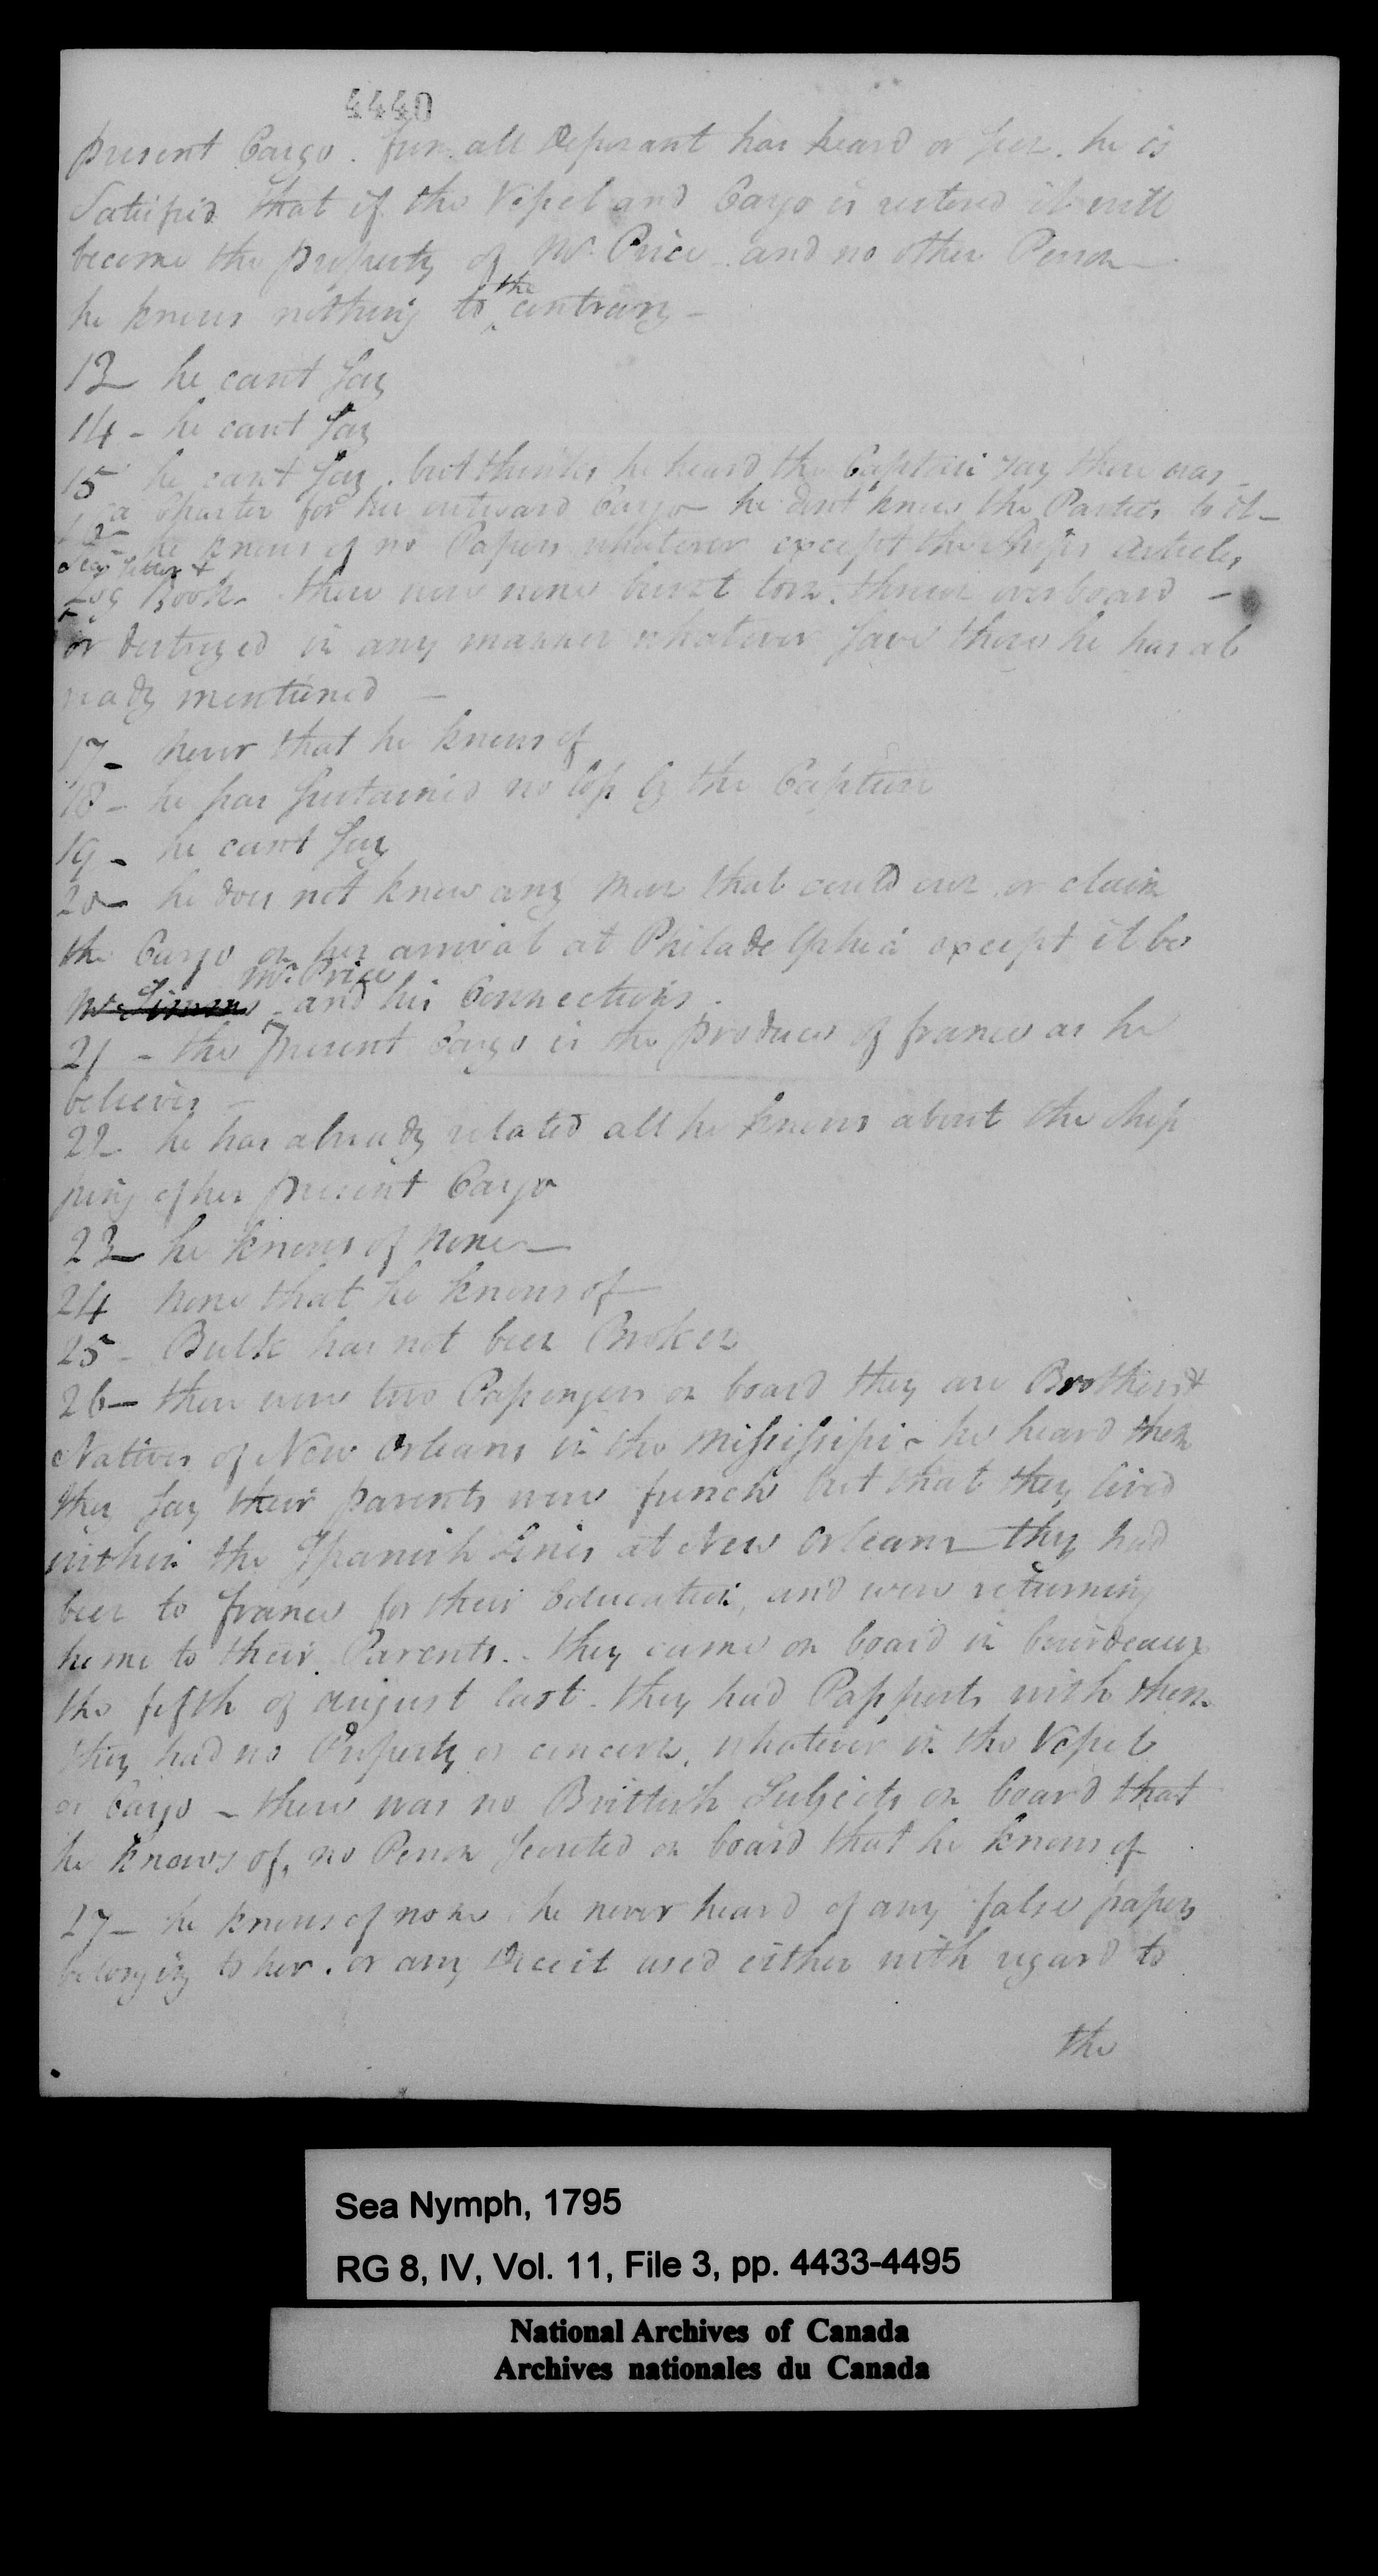 4440
present Cargo. from all Deponant has heard or seen. he is
Satisfied that if the Vessel and Cargo is restored it will
become the property of Mr. Price and no other Person
the
he knows nothing to contrary -
13 he cant Say
14 - he cant Say
15 he cant Say. but thinks he heard the Captain say there was
a Charter for her outward Cargo he dont know the Parties to it -
16 - he knows of no Papers whatever except the Ships articles,
Sea letter &
Log Book. there were none burnt torn. thrown overboard -
or destroyed in any manner whatever Save those he has al
ready mentioned -
17 - never that he knows of
18 - he has Sustained no loss by the Capture
19 - he cant Say
20 - he does not know any Man that could own or claim
the Cargo on her arrival at Philadelphia except it be
Mr. Price
and his Connections.
21 - the Present Cargo is the produce of france as he
believes -
22 he has already related all he knows about the Ship
ping of her present Cargo
23 he knows of None -
24 None that he knows of -
25 - Bulk has not been Broken
26 - there were two Passengers on board they are Brothers &
Natives of New Orleans in the Missisippi - he heard them
they Say their parents were french but that they lived
within the Spanish Lines at New Orleans - they had
been to france for their Education, and were returning
home to their Parents. - they came on board in bourdeaux
the fifth of august last - they had Passports with them
they had no Property or concern, whatever in the Vessel
or Cargo - there was no Brittish Subjects on board that
he knows of, no Person Secreted on board that he knows of
27 - he knows of none. he never heard of any false papers
belonging to her. or any Deceit used either with regard to
the
Sea Nymph, 1795
RG 8, IV, Vol. 11, File 3, pp. 4433-4495
National Archives of Canada
Archives nationales du Canada